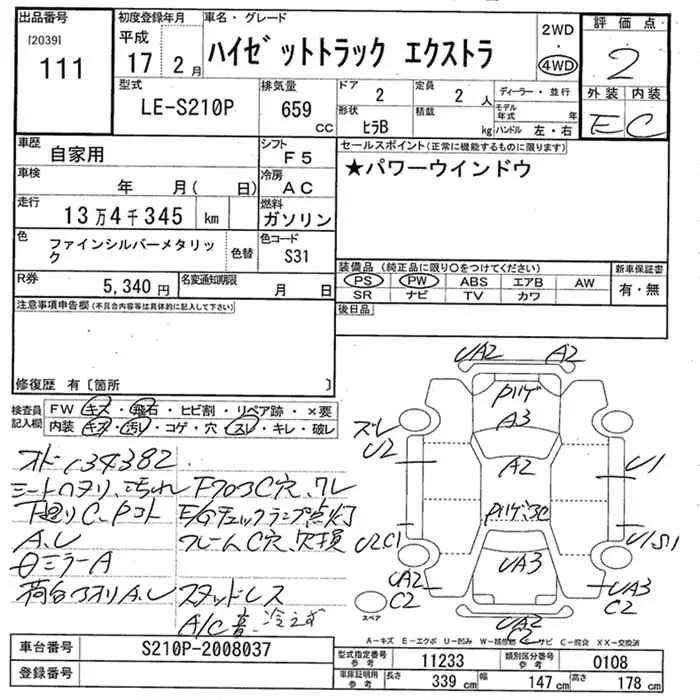 出品番号
[2039]
111
初度登録年月
平成
17 2月
車名・グレード
ハイゼットトラック エクストラ
2WD
・
4WD
評価点
2
外装 内装
E C
型式
LE-S210P
排気量
659 cc
ドア
2
形状
ヒラB
定員
2 人
積載
kg
ディーラー・並行
モデル年式 年
ハンドル 左・右
車歴
自家用
シフト
F5
車検
年 月( 日)
冷房
AC
走行
13万4千345 km
燃料
ガソリン
色
ファインシルバーメタリック
色替
色コード
S31
R券
5,340 円
名変通知期限
月 日
セールスポイント(正常に機能するものに限ります)
★パワーウインドウ
装備品(純正品に限り○をつけてください)
PS PW ABS エアB AW
SR ナビ TV カワ
新車保証書
有・無
後日品
注意事項申告欄(不具合内容等は具体的に記入して下さい)
修復歴 有〔箇所 〕
検査員記入欄
FW キズ・飛石・ヒビ割・リペア跡・×要
内装 キズ・汚レ・コゲ・穴・スレ・キレ・破レ
オド134382
シートヘタリ、こちれ FフロアC穴、ワレ
下廻りC、Pコト E/Gチェックランプ点灯
A、U フレームC穴、欠損
ミラーA
荷台アオリA、U スタッドレス
A/C 音、冷えず
UA2 A2
Pハゲ
A3
ズレ
U2
A2
U1
Pハゲ、3C
U2C1
U1S1
UA3
UA2
C2
UA3
C2
UA2
C2
スペア
A-キズ E-エクボ U-凹み W-補修跡 S-サビ C-腐食 XX-交換済
車台番号
S210P-2008037
登録番号
型式指定番号 参考
11233
類別区分番号 参考
0108
車庫証明用 参考
長さ 339 cm 幅 147 cm 高さ 178 cm